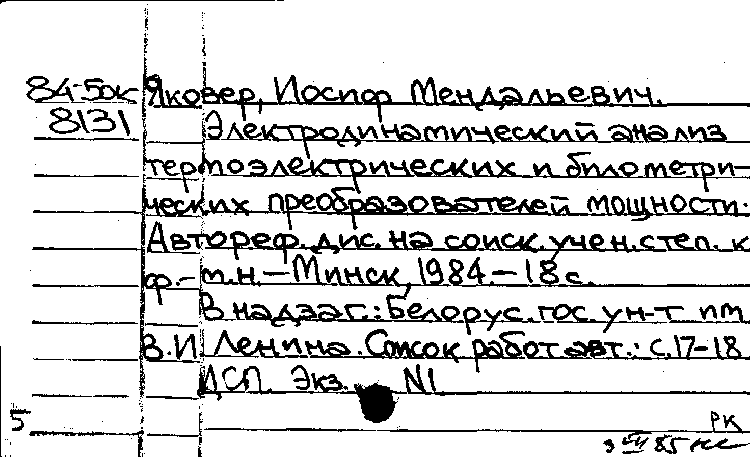 84-50к Яковер, Иосиф Мендальевич.
8131 Электродинамический анализ
термоэлектрических и билометри-
ческих преобразователей мощности:
Автореф. дис. на соиск. учен. степ. к
ф.-м.н. – Минск, 1984. – 18 с.
В надзаг.: Белорус. гос. ун-т им
В.И. Ленина. Список работ авт.: с. 17-18
ДСП. Экз. N1
5 РК
85